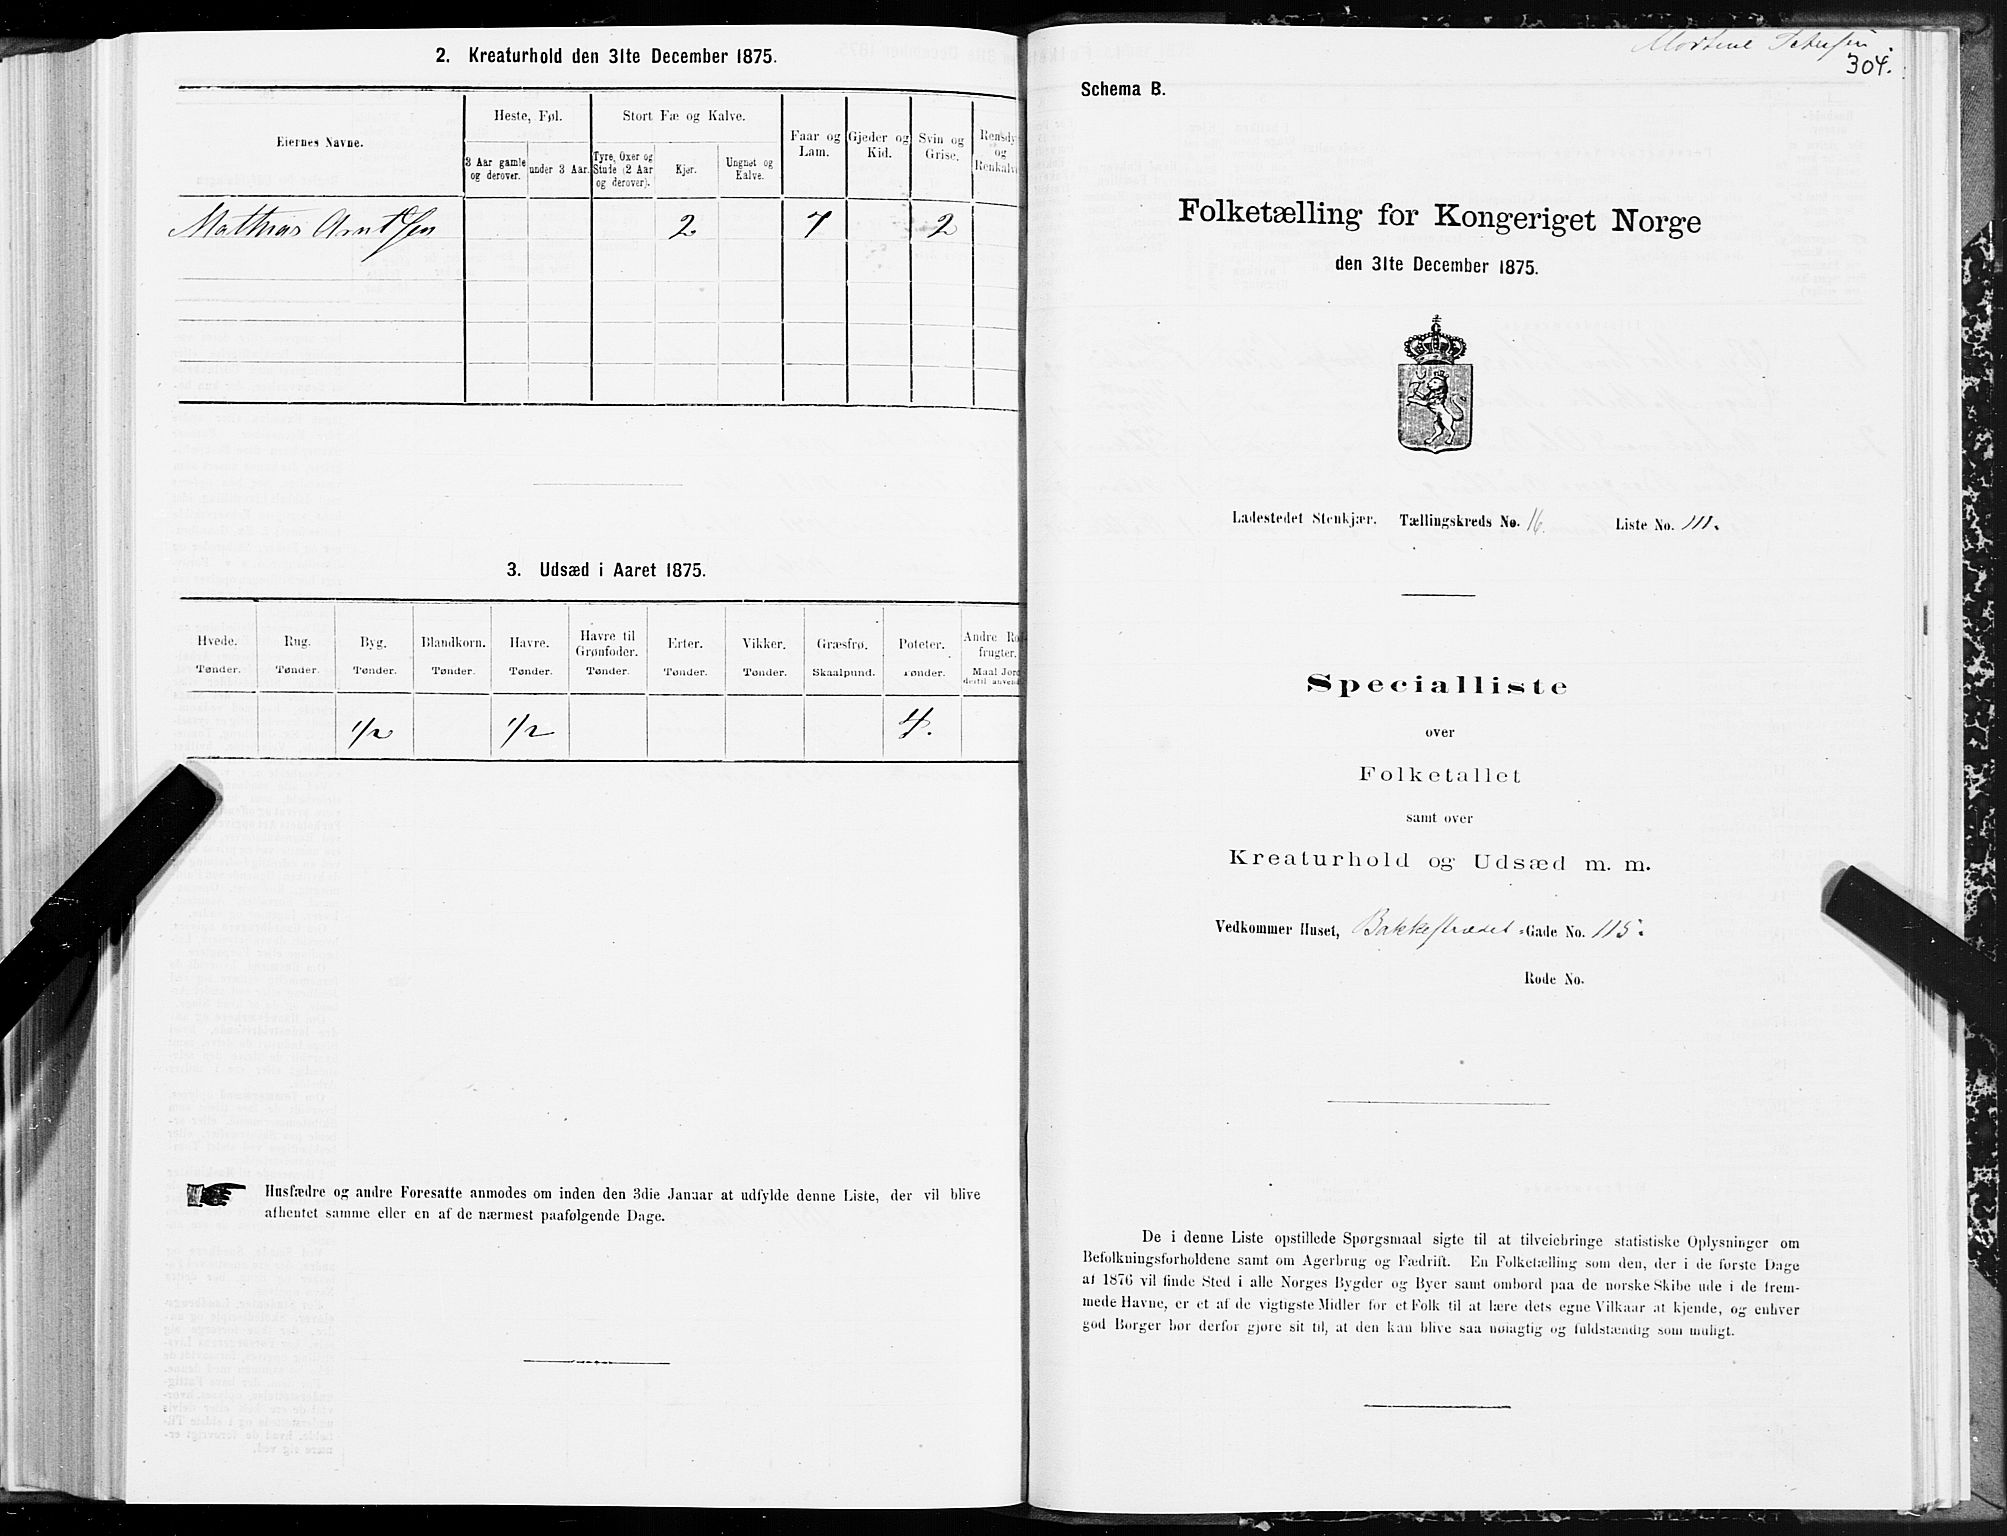 2. Kreaturhold den 31te December 1875.
Eiernes Navne.
Heste, Føl.
Stort Fæ og Kalve.
Faar og Lam.
Gjeder og Kid.
Svin og Grise.
Rensdy og Renkalv
3 Aar gamle og derover.
under 3 Aar.
Tyre, Oxer og Stude (2 Aar og derover).
Kjør.
Ungnøt og Kalve.
Mathias Arntsen 2 7 2
3. Udsæd i Aaret 1875.
Hvede. Rug. Byg. Blandkorn. Havre. Havre til Grønfoder. Erter. Vikker. Græsfrø. Poteter. Andre Ro frugter.
Tønder. Tønder. Tønder. Tønder. Tønder. Tønder. Tønder. Tønder. Skaalpund. Tønder. Maal Jord dertil anvend
1/2 1/2 4.
Husfædre og andre Foresatte anmodes om inden den 3die Januar at udfylde denne Liste, der vil blive
afhentet samme eller en af de nærmest paafølgende Dage.
Mortine Petersen
304.
Schema B.
Folketælling for Kongeriget Norge
den 31te December 1875.
Ladestedet Stenkjær. Tællingskreds No. 16. Liste No. 111.
Specialliste
over
Folketallet
samt over
Kreaturhold og Udsæd m. m.
Vedkommer Huset, Bakkestrædet -Gade No. 115.
Rode No.
De i denne Liste opstillede Spørgsmaal sigte til at tilveiebringe statistiske Oplysninger om
Befolkningsforholdene samt om Agerbrug og Fædrift. En Folketælling som den, der i de første Dage
af 1876 vil finde Sted i alle Norges Bygder og Byer samt ombord paa de norske Skibe ude i de frem-
mede Havne, er et af de vigtigste Midler for et Folk til at lære dets egne Vilkaar at kjende, og enhver
god Borger bør derfor gjøre sit til, at den kan blive saa nøiagtig og fuldstændig som muligt.